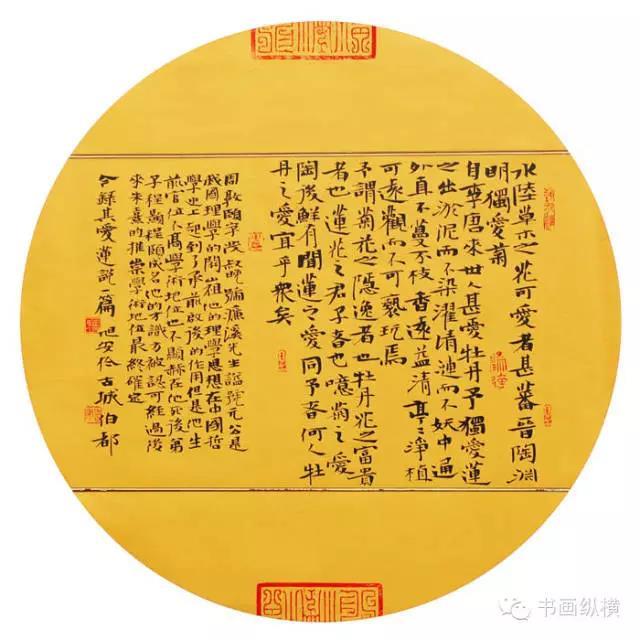 水陸草木之花可愛者甚蕃晉陶淵
明獨愛菊
自李唐來世人甚愛牡丹予獨愛蓮
之出淤泥而不染濯清漣而不妖中通
外直不蔓不枝香遠益清亭〻淨植
可遠觀而不可褻玩焉
予謂菊花之隱逸者也牡丹花之富貴
者也蓮花之君子者也噫菊之愛
陶後鮮有聞蓮之愛同予者何人牡
丹之愛宜乎衆矣
周敦頤字茂叔號濂溪先生謚號元公是
我國理學的開山祖他的理學思想在中國哲
學史上起到了承前啟後的作用但是他生
前官位不高學術地位也不顯赫在他死後弟
子程顥程頤成名他的才識方被認可經過後
來朱熹的推崇學術地位最終確定
今錄其愛蓮說一篇 安於古城伯都
书画纵横